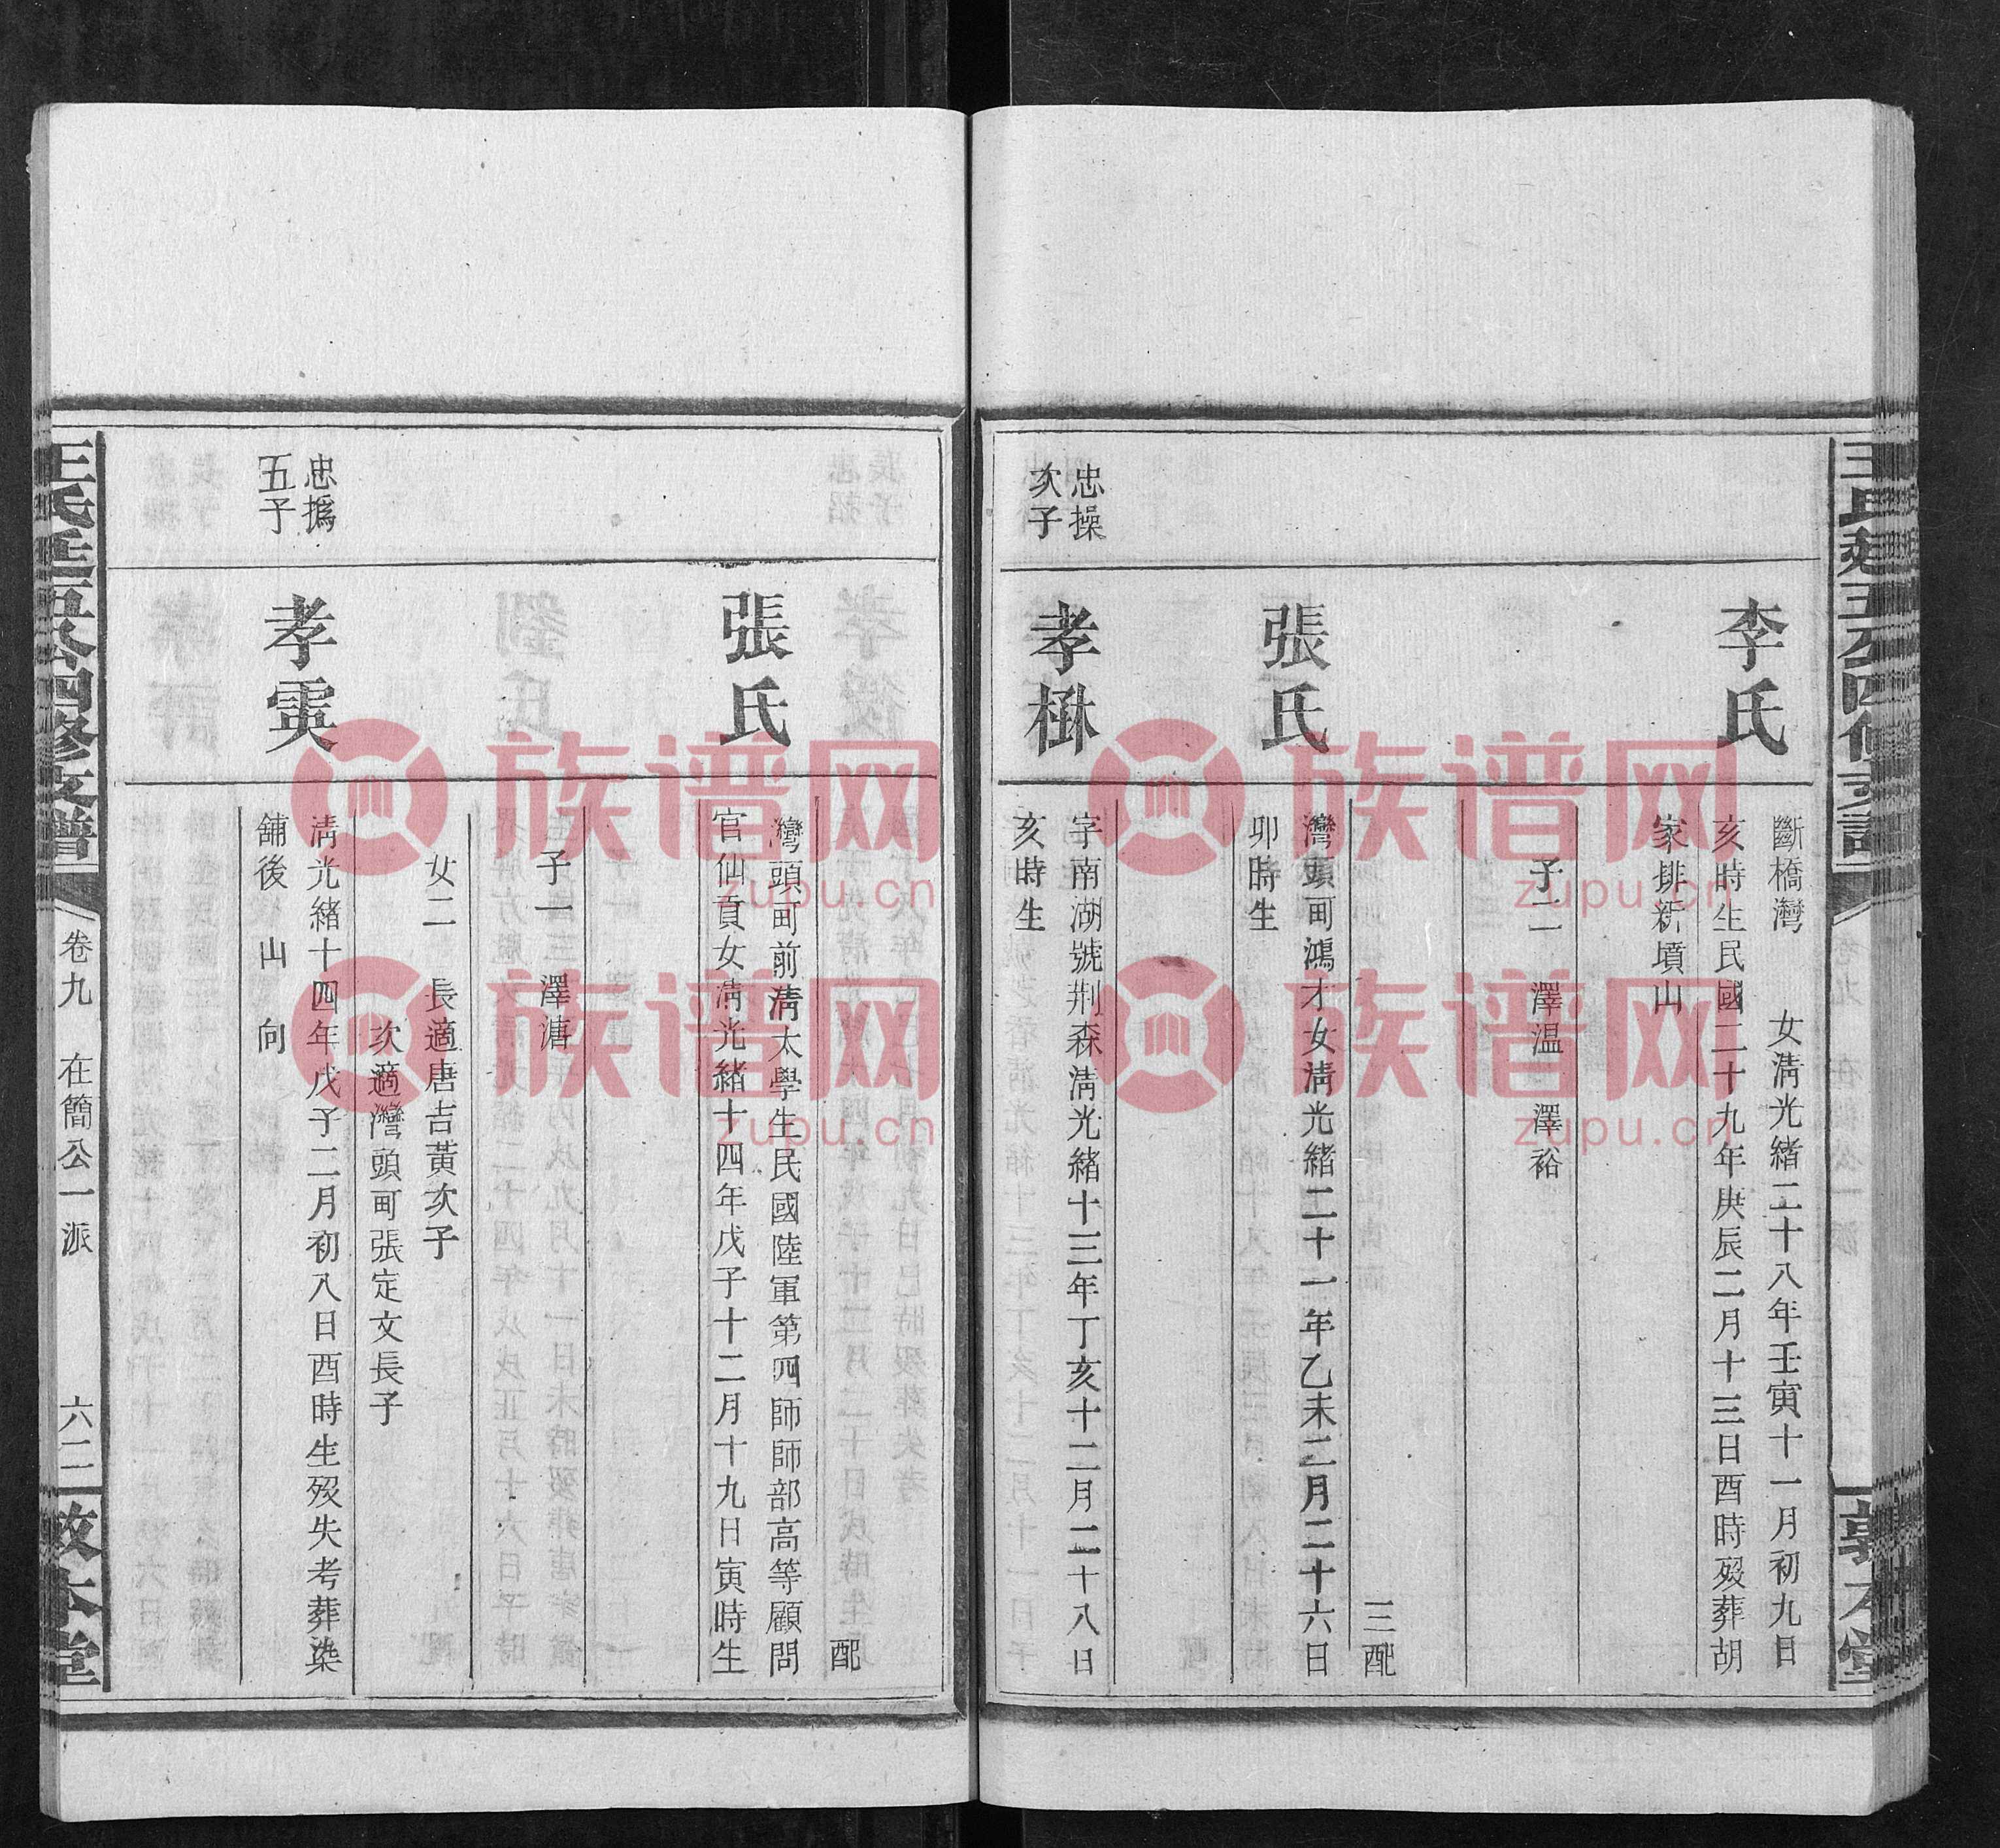 李氏
斷橋灣　女淸光緒二十八年壬寅十一月初九日
亥時生民國二十九年庚辰二月十三日酉時歿葬胡
家排新墳山
子二　澤温　澤裕
三配
張氏
灣頭町鴻才女淸光緒二十一年乙未二月二十六日
卯時生
忠操
次子
孝楙
字南湖號荆森淸光緒十三年丁亥十二月二十八日
亥時生
配
張氏
灣頭町前淸太學生民國陸軍第四師師部高等顧問
官仙貢女淸光緒十四年戊子十二月十九日寅時生
子一　澤溏
女二　長適唐吉黃次子
次適灣頭町張定文長子
忠撝
五子
孝霙
淸光緒十四年戊子二月初八日酉時生歿失考葬染
舖後　山　向
王氏廷五公四修支譜
卷九　在簡公一派
六二
敦本堂
族谱网
zupu.cn
族谱网
zupu.cn
族谱网
zupu.cn
族谱网
zupu.cn